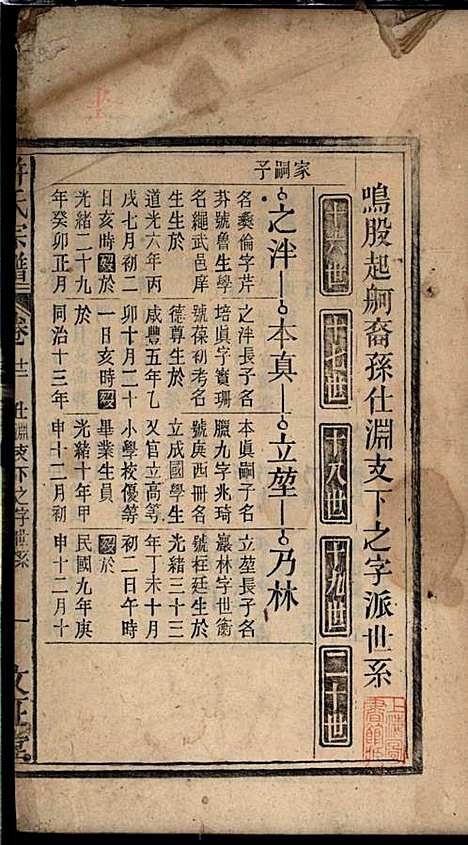 鳴股起舸裔孫仕淵支下之字派世系
十六世 十七世 十八世 十九世 二十世
家嗣子
之泮 本真 立堃 乃林
名彝倫字芹
芬號魯生學
名繩武邑庠
生生於
道光六年丙
戌七月初二
日亥時歿於
光緒二十九
年癸卯正月
之泮長子名
培真字寶珊
號葆初考名
德尊生於
咸豐五年乙
卯十月二十
一日亥時歿
於
同治十三年
本真嗣子名
臘九字兆琦
號庚西冊名
立成國學生
又官立高等
小學校優等
畢業生員
光緒十年甲
申十二月初
立堃長子名
巖林字世衡
號柱廷生於
光緒三十三
年丁未十月
初二日午時
歿於
民國九年庚
申十二月十
許氏宗譜
卷十二 仕淵支下之字世系
一